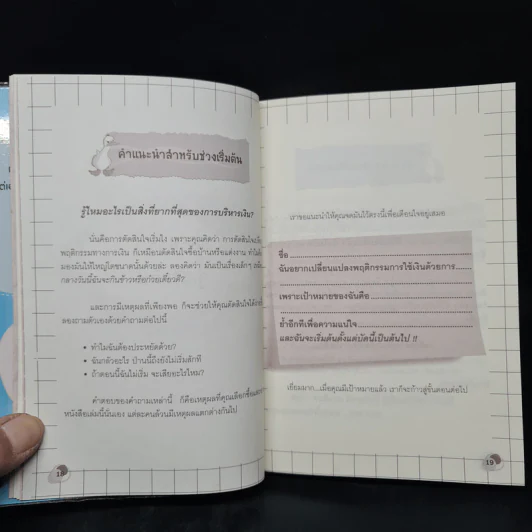 คำแนะนำสำหรับช่วงเริ่มต้น
รู้ไหมอะไรเป็นสิ่งที่ยากที่สุดของการบริหารเงิน?
นั่นคือการตัดสินใจเริ่มไง เพราะคุณคิดว่า การตัดสินใจ
พฤติกรรมทางการเงิน ก็เหมือนตัดสินใจซื้อบ้านหรือแต่งงาน
มองมันให้ใหญ่โตขนาดนั้นด้วยล่ะ ลองคิดว่า มันเป็นเรื่องเล็กๆ
กลางวันนี้ฉันจะกินข้าวหรือก๋วยเตี๋ยวดี?
และการมีเหตุผลที่เพียงพอ ก็จะช่วยให้คุณตัดสินใจได้
ลองถามตัวเองด้วยคำถามต่อไปนี้
• ทำไมฉันต้องประหยัดด้วย?
• ฉันกลัวอะไร ป่านนี้ถึงยังไม่เริ่มสักที
• ถ้าตอนนี้ฉันไม่เริ่ม จะเสียอะไรไหม?
คำตอบของคำถามเหล่านี้ ก็คือเหตุผลที่คุณเลือก
หนังสือเล่มนี้นั่นเอง แต่ละคนล้วนมีเหตุผลแตกต่างกันไป
18
เราขอแนะนำให้คุณจดมันไว้ตรงนี้เพื่อเตือนใจอยู่เสมอ
ชื่อ
ฉันอยากเปลี่ยนแปลงพฤติกรรมการใช้เงินด้วยการ
เพราะเป้าหมายของฉันคือ
ย้ำอีกทีเพื่อความแน่ใจ
และฉันจะเริ่มต้นตั้งแต่บัดนี้เป็นต้นไป !!
เยี่ยมมาก...เมื่อคุณมีเป้าหมายแล้ว เราก็จะก้าวสู่ขั้นตอนต่อไป
19